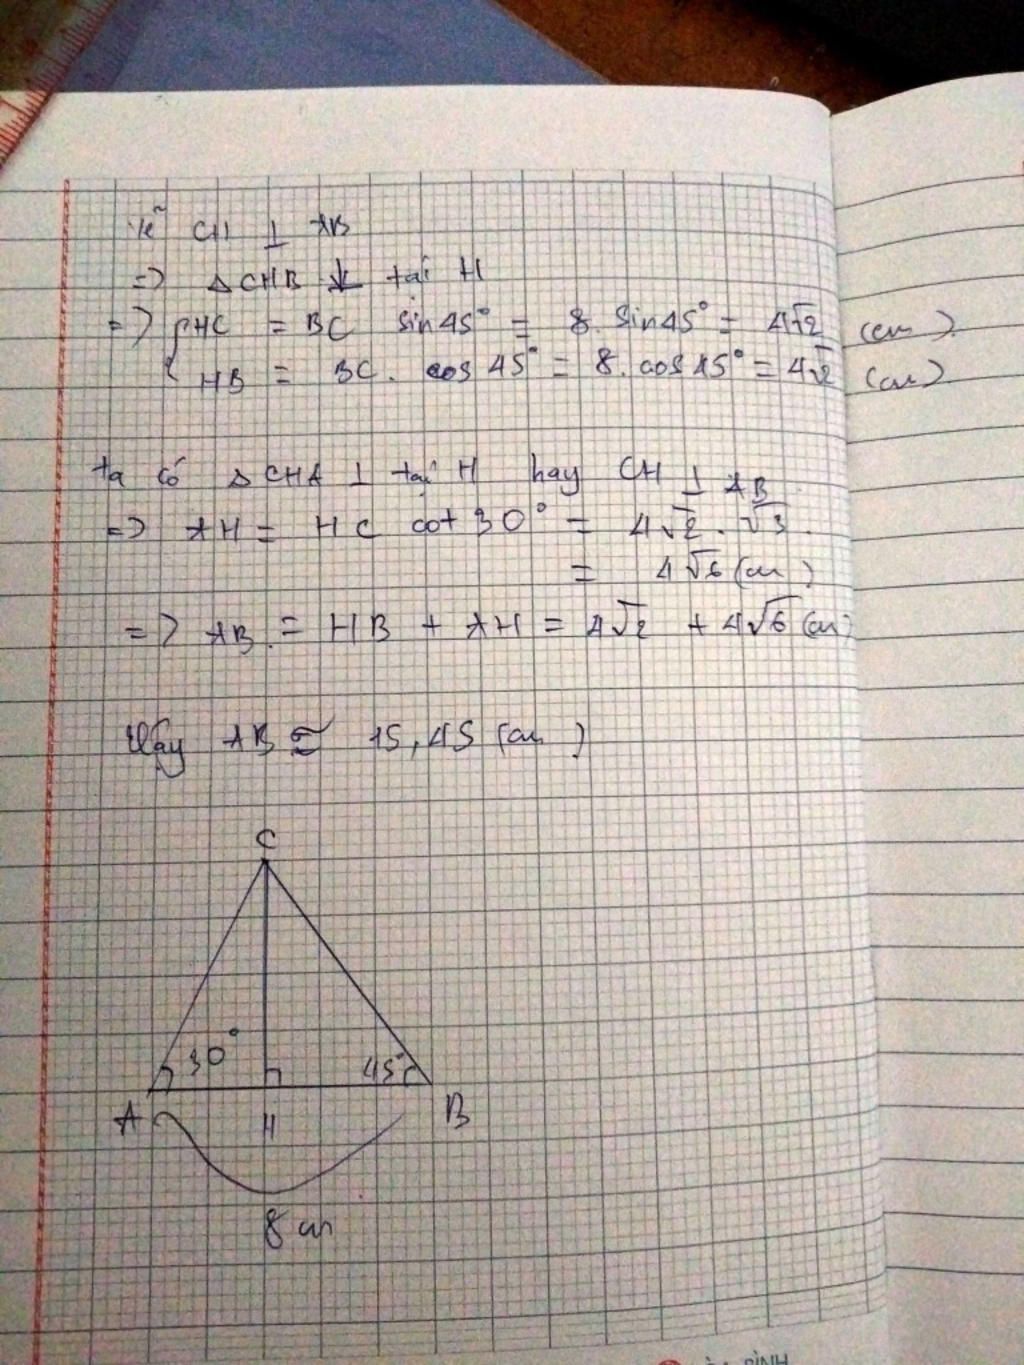 Kẽ CH ⊥ AB
=> ΔCHB ⊥ tại H
=> { HC = BC sin45° = 8. sin45° = 4√2 (cm).
HB = BC. cos 45° = 8. cos 45° = 4√2 (cm)
ta có ΔCHA ⊥ tại H hay CH ⊥ AB.
=> AH = HC cot 30° = 4√2 . √3.
= 4√6 (cm)
=> AB = HB + AH = 4√2 + 4√6 (cm)
Vậy AB ≈ 15,45 (cm)
C
30° 45°
A H B
8 cm